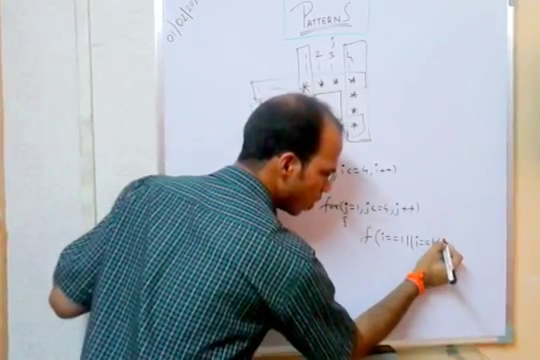 01/02/20
PATTERNS
j
1 2 3 4
* * * *
*
*
*
i<=4, i++)
for(j=1, j<=4, j++)
{
if(i==1||i==4